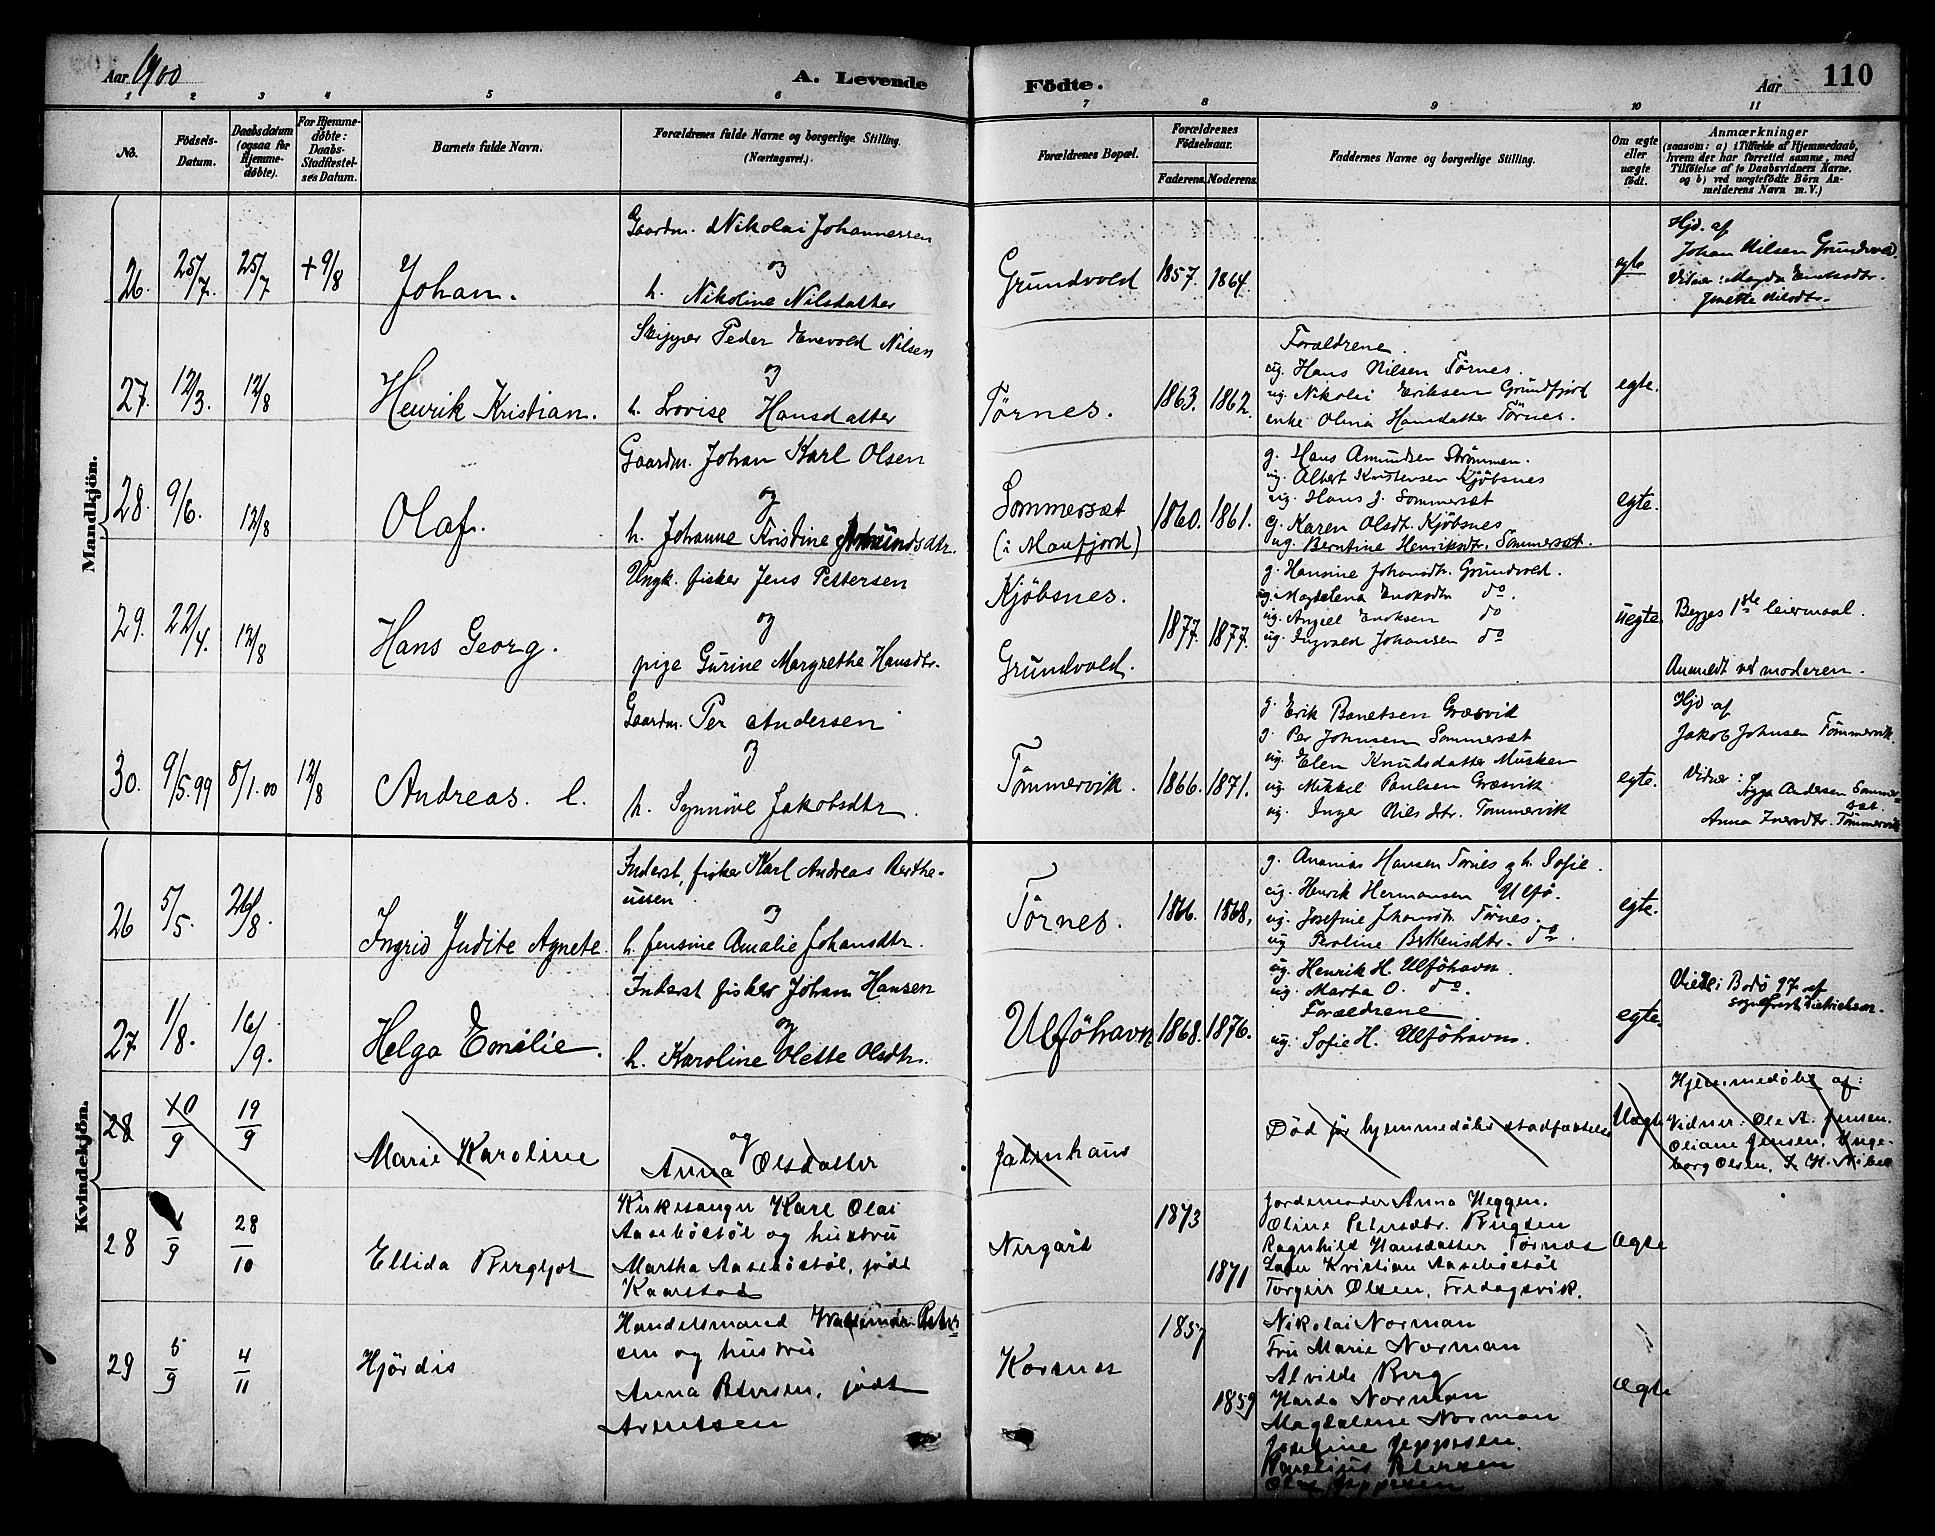 Aar 1900
A. Levende
Fødte.
Aar
110
1 2 3 4 5 6 7 8 9 10 11
No.
Födsels-
Datum.
Daabsdatum
(ogsaa for
Hjemme-
døbte).
For Hjemme-
døbte:
Daabs-
Stadfæstel-
ses Datum.
Barnets fulde Navn.
Forældrenes fulde Navne og borgerlige Stilling.
(Næringsvei.)
Forældrenes Bopæl.
Forældrenes
Födselsaar.
Faderens. Moderens.
Faddernes Navne og borgerlige Stilling.
Om ægte
eller
uægte
født.
Anmærkninger
(saasom: a) i Tilfælde af Hjemmedaab,
hvem der har forrettet samme, med
Tilføielse af to Daabsvidners Navne,
og b) ved uægtefødte Børn An-
melderens Navn m. V.)
Mandkjön.
26. 25/7. 25/7 + 9/8
Johan.
Gaardm. Nikolai Johannessen
og
h. Nikoline Nilsdatter
Grundvold 1857. 1864.
egte
Hjd. af
Johan Nilsen Grundvold.
Vidner: Magda Enoksdtr.
27. 12/3. 12/8
Henrik Kristian.
Skipper Peder Enevold Nilsen
og
h. Lovise Hansdatter
Tørnes. 1863. 1862.
Forældrene.
ug. Hans Nilsen Tørnes.
ug. Nikolai Eriksen Grundfjord
enke Olina Hansdatter Tørnes.
egte.
28. 9/6. 12/8
Olaf.
Gaardm. Johan Karl Olsen
og
h. Johanne Kristine Amundsdtr.
Sommersæt
(i Manfjord)
1860. 1861.
g. Hans Amundsen Strømmen.
ug. Albert Kristensen Kjøbsnes
ug. Hans J. Sommersæt
g. Karen Olsdt. Kjøbsnes
ug. Berntine Henriksdtr. Sommersæt.
egte.
29. 22/4. 12/8
Hans Georg.
Ungk. fisker Jens Pettersen
og
pige Gurine Margrethe Hansdtr.
Kjøbsnes.
Grundvold.
1877. 1877.
g. Hansine Johansdtr. Grundvold.
ug. Magdalena Enoksdtr do.
ug. Angel Enoksen do
ug. Ingvald Johansen do
uegte.
Begges 1ste leiermaal.
Anmeldt ved moderen.
30. 9/5.99 8/1.00 12/8
Andreas. l.
Gaardm. Per Andersen
og
h. Synnöve Jakobsdtr.
Tömmervik. 1866. 1871.
g. Erik Banetsen Græsvik
g. Per Johnsen Sommersæt
ug. Elen Knudsdatter Musken
ug. Mikkel Paulsen Græsvik
ug. Inger Nilsdtr. Tømmervik
egte.
Hjd. af
Jakob Johnsen Tömmervik.
Vidner:
Andersen Sommer-
sæt.
Anna Iversdtr. Tömmervik
Kvindekjön.
26 5/5. 26/8.
Ingrid Judite Agnete.
Inderst, fisker Karl Andreas Berthe-
ussen
og
h. Jensine Amalie Johansdtr.
Törnes. 1866. 1868.
g. Ananias Hansen Tørnes g h. Sofie.
ug. Henrik Hermansen Ulfö.
ug. Josefine Johansdtr. Tørnes.
ug. Peroline do.
egte.
27. 1/8. 16/9.
Helga Emilie.
Inderst fisker Johan Hansen
og
h. Karoline Olette Olsdtr.
Ulföhavn 1868. 1876.
ug. Henrik H. Ulföhavn.
ug. Marta O. do.
Forældrene
ug. Sofie H. Ulföhavn.
egte.
Viet i Bodø 97 af
28 10/9 19/9
Marie Karoline
og
Anna Olsdatter
Død før hjemmedåbs stadfæstelse
Uægte
Hjemmedøbt af:
Vidner: Ole A. Jensen.
Oliane Jensen, Inge-
borg Olsen,
28 9 28/10
Ellida Bergljot
Kirkesanger Karl Olai
Aaseböstöl og hustru
Martha Aaseböstöl, født
Kaarstad
Nergård 1873 1871
Jordemoder Anna Heggen.
Oline Petersdtr. Bugten
Ragnhild Hansdatter Tørnes
Lars Kristian Aaseböstöl
Torgeir Olsen, Fredagsvik.
Ægte
29 5/9 4/11
Hjördis
Handelsmand Peter-
sen og hustru
Anna Petersen, født
Arentsen
Korsnes 1857 1859
Nikolai Norman
Fru Marie Norman
Alvilde Berg
Harda Norman
Magdalene Norman
Josefine Jeppesen.
Kornelius Petersen
Olaf Jeppesen
Ægte